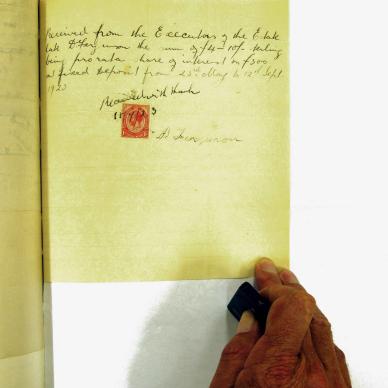 Received from the Executors of the Estate
late D Ferguson the sum of £4-10/- sterling
being pro rata share of interest on £300
a fixed Deposit from 25th May to 12th Sept
1923
Received with thanks
Ferguson